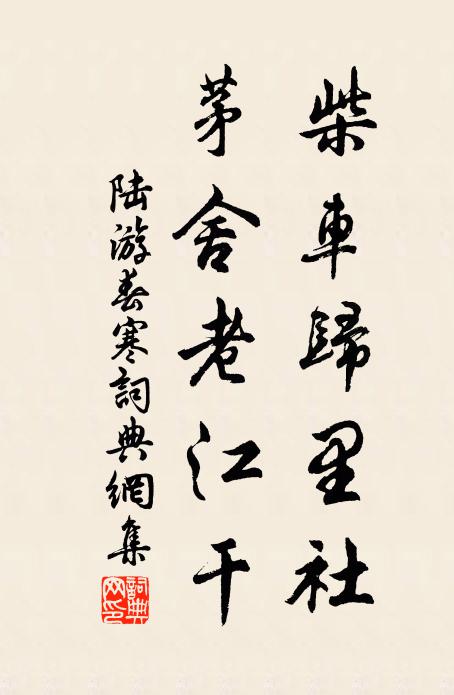 柴車歸里社
茅舍老江干
陸游春寒詞典網集
詞典网印